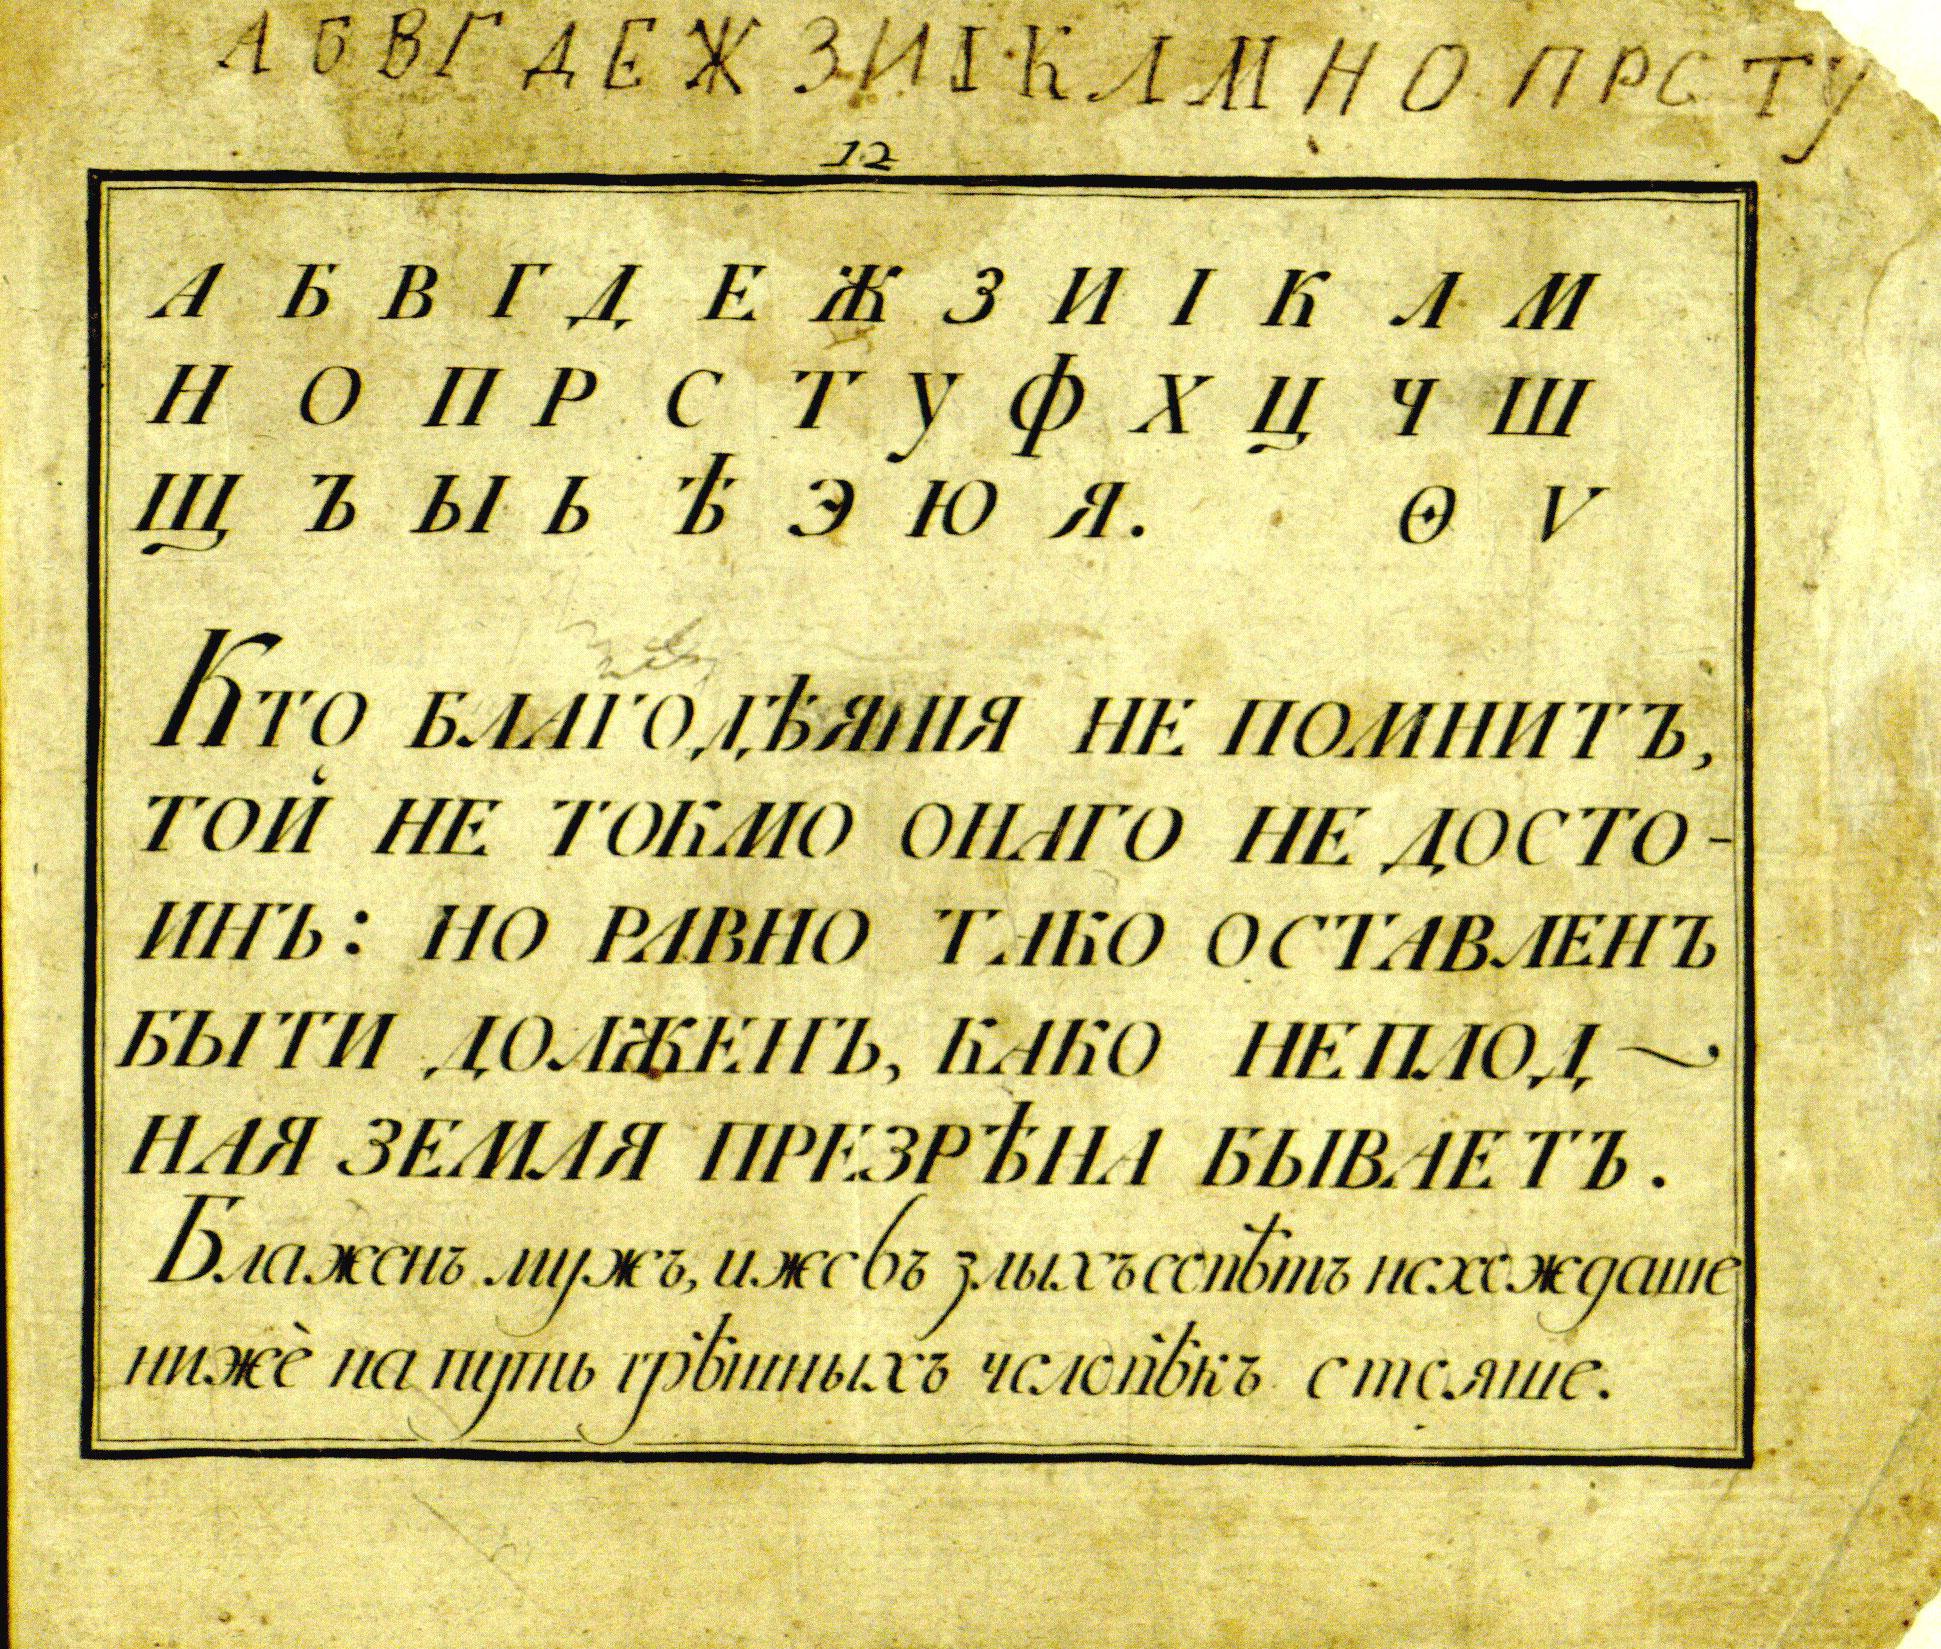 А Б В Г Д Е Ж З И І К Л М Н О П Р С Т У
12
А Б В Г Д Е Ж З И І К Л М
Н О П Р С Т У Ф Х Ц Ч Ш
Щ Ъ Ы Ь Ѣ Э Ю Я. Ѳ Ѵ
Кто благодѣяния не помнитъ,
той не токмо онаго не досто-
инъ: но равно тако оставленъ
быти долженъ, како неплод~
ная земля презрѣна бываетъ.
Блаженъ мужъ, иже въ злыхъ совѣтъ не хождаше
нижѐ на путь грѣшныхъ человѣкъ стояше.